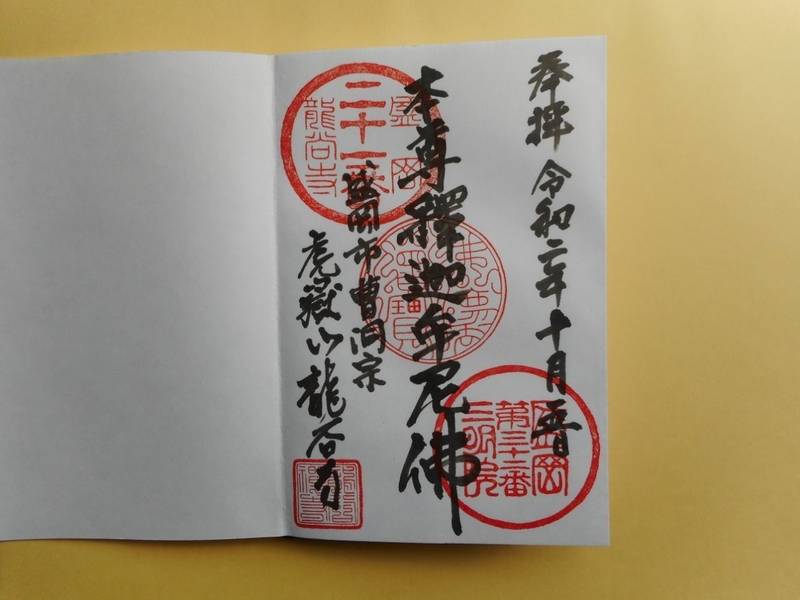 奉拝 令和二年十月
本尊釋迦牟尼佛
盛岡市曹洞宗
虎嶽山龍谷寺
盛岡
二十一番
龍谷寺
盛岡
第三十三番
三明院